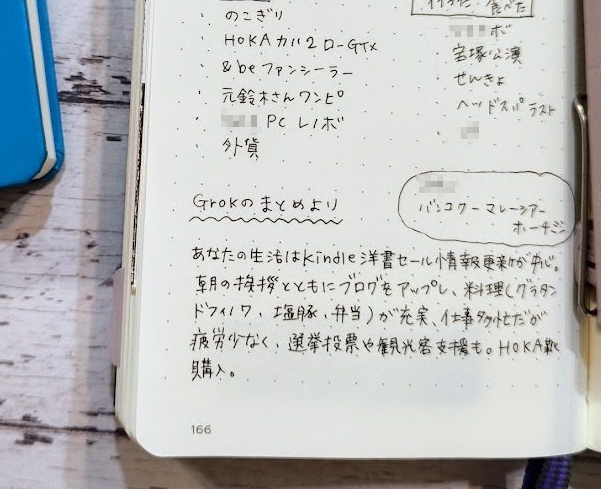 のこぎり
HOKA カハ2 ロ-GTX
&beファンシーラー
元鈴木さんワンピ
PC レノボ
外貨
食べた
ボ
宝塚公演
せんきょ
ヘッドスパ ラスト
Grokのまとめより
バンコクーマレーシアー
ホーチミン
あなたの生活はkindle洋書セール情報更新が中心。
朝の挨拶とともにブログをアップし、料理(グラタン
ドフィノワ、塩豚、弁当)が充実、仕事多忙だが
疲労少なく、選挙投票や観光客支援も。HOKA靴
購入。
166